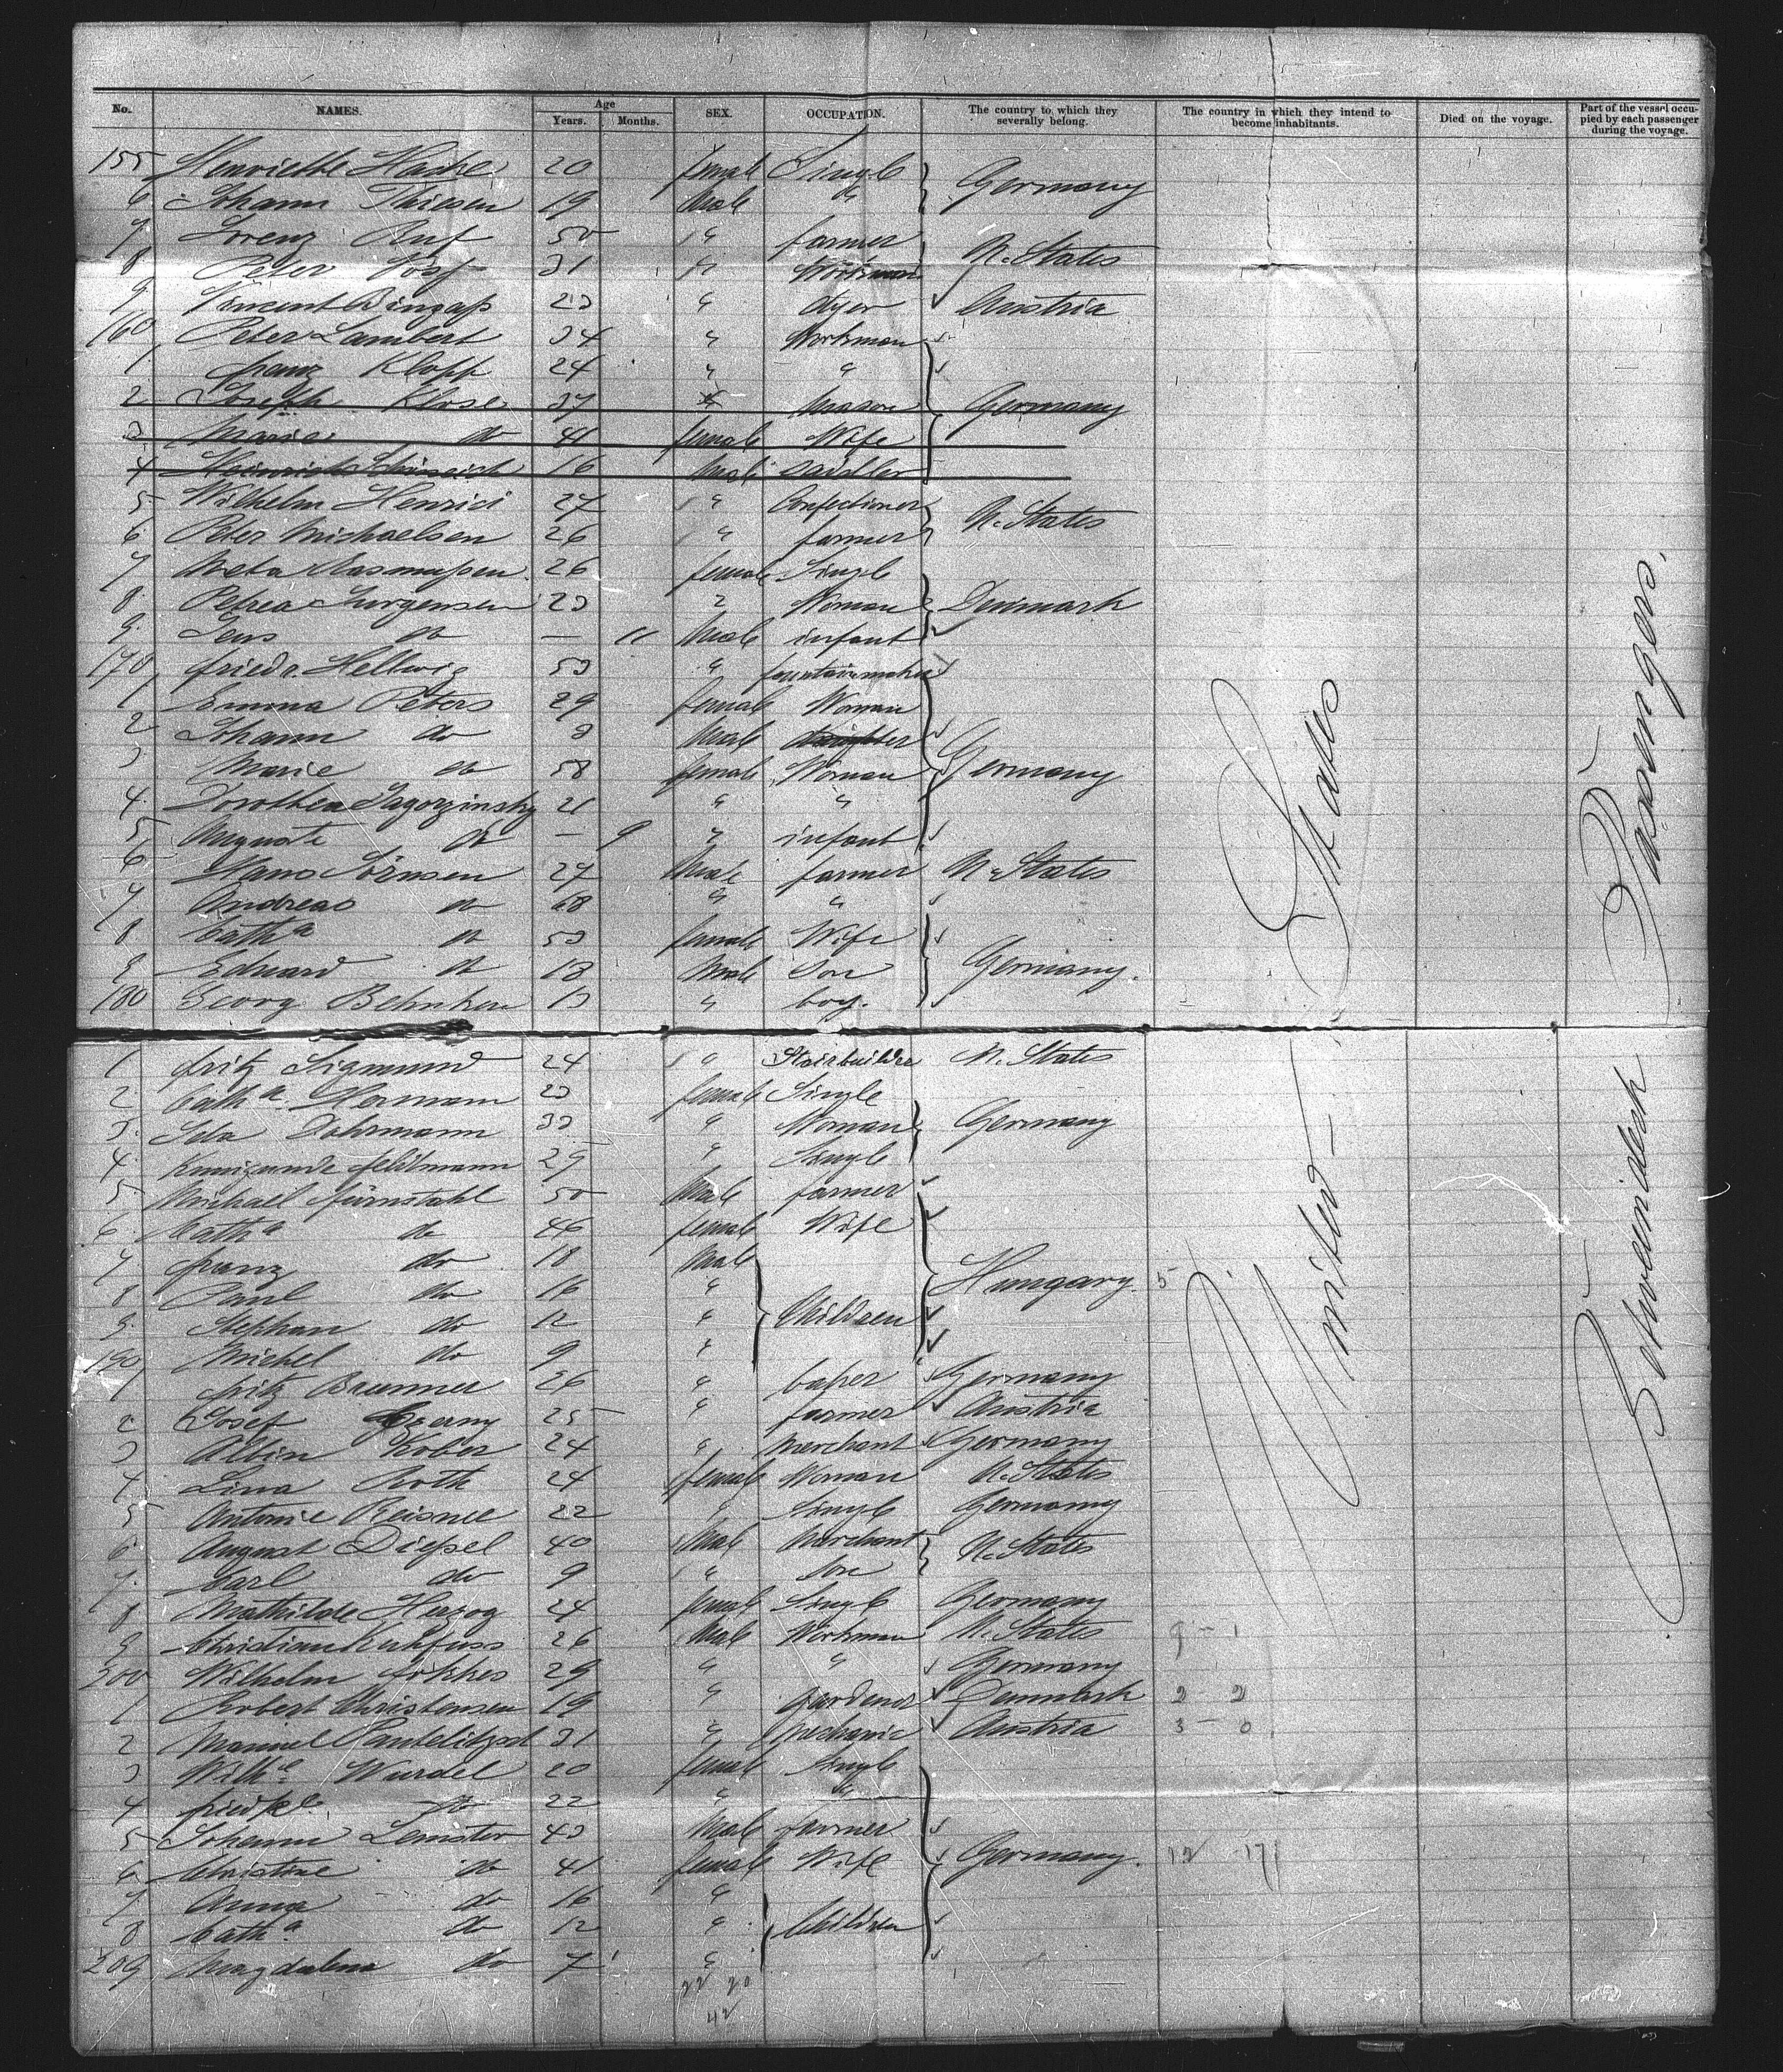 No. NAMES. Age Years. Months. SEX. OCCUPATION. The country to which they severally belong. The country in which they intend to become inhabitants. Died on the voyage. Part of the vessel occupied by each passenger during the voyage.
155 Henriette 20 female Single
6 Johann Thiesen 19 Male " Germany
7 Lorenz Ruf 50 " farmer
8 Peter 31 " Workman U. States
9 Vincent 23 " dyer Austria
160 Peter Lambert 34 " Workman
1 franz Klopp 24 " "
2 Joseph Klose 37 " Mason Germany
3 Marie do 41 female Wife
4 Heinrich 16 Male Sadler
5 Wilhelm Henrici 27 " Confectioner U. States
6 Peter Michaelsen 26 " farmer
7 Meta Rasmussen 26 female Single
8 Petrea Jurgensen 23 " Woman Denmark
9 Jens do — 11 Male infant
170 friedr. Hellwig 53 " fountainmaker
1 Emma Peters 29 female Woman
2 Johann do 3 Male
3 Marie do 58 female Woman Germany
4 Dorothea Zagorzinsky 21 " "
5 Auguste do — 9 " infant
6 Hans Sörnsen 27 Male farmer U. States
7 Andreas do 68 " "
8 Cath a do 53 female Wife
9 Eduard do 13 Male Son Germany.
180 Georg Behnken 13 " boy.
1 fritz Sigmund 24 " Stairbuilder U. States
2 Cath a. Hermann 23 female Single
3 Ida Dohrmann 33 " Woman Germany
4 Kunigunde feldmann 25 " Single
5 Michael fürnstahl 50 Male farmer
6 Cath a do 46 female Wife
7 franz do 18 Male
8 Paul do 16 " Hungary. 5
9 Stephan do 12 " Children
190 Michel do 9 "
1 fritz Brunner 26 " Germany
2 Josef Czerny 25 " farmer Austria
3 Albin Kober 24 " Merchant Germany
4 Lina Roth 24 female Woman U. States
5 Antonie Reisner 22 " Single Germany
6 August Diessel 40 Male Merchant U. States
7 Carl do 9 " Son
8 Mathilde Herzog 24 female Single Germany
9 Christian Kuhfuss 26 Male Workman U. States 9 - 1
200 Wilhelm fokkes 29 " " Germany
1 Robert Christensen 19 " gardener Denmark 2 - 2
2 Manuel 31 " Mechanic Austria 3 - 0
3 Wilh e. Wurdel 20 female Single
4 do 22 " "
5 Johann Lemster 43 Male farmer
6 Christine do 41 female Wife Germany. 12 17
7 Anna do 16 "
8 Cath a. do 12 " Children
209 Magdalena do 7 "
22 20
42
United States
Betweendeck Passengers.